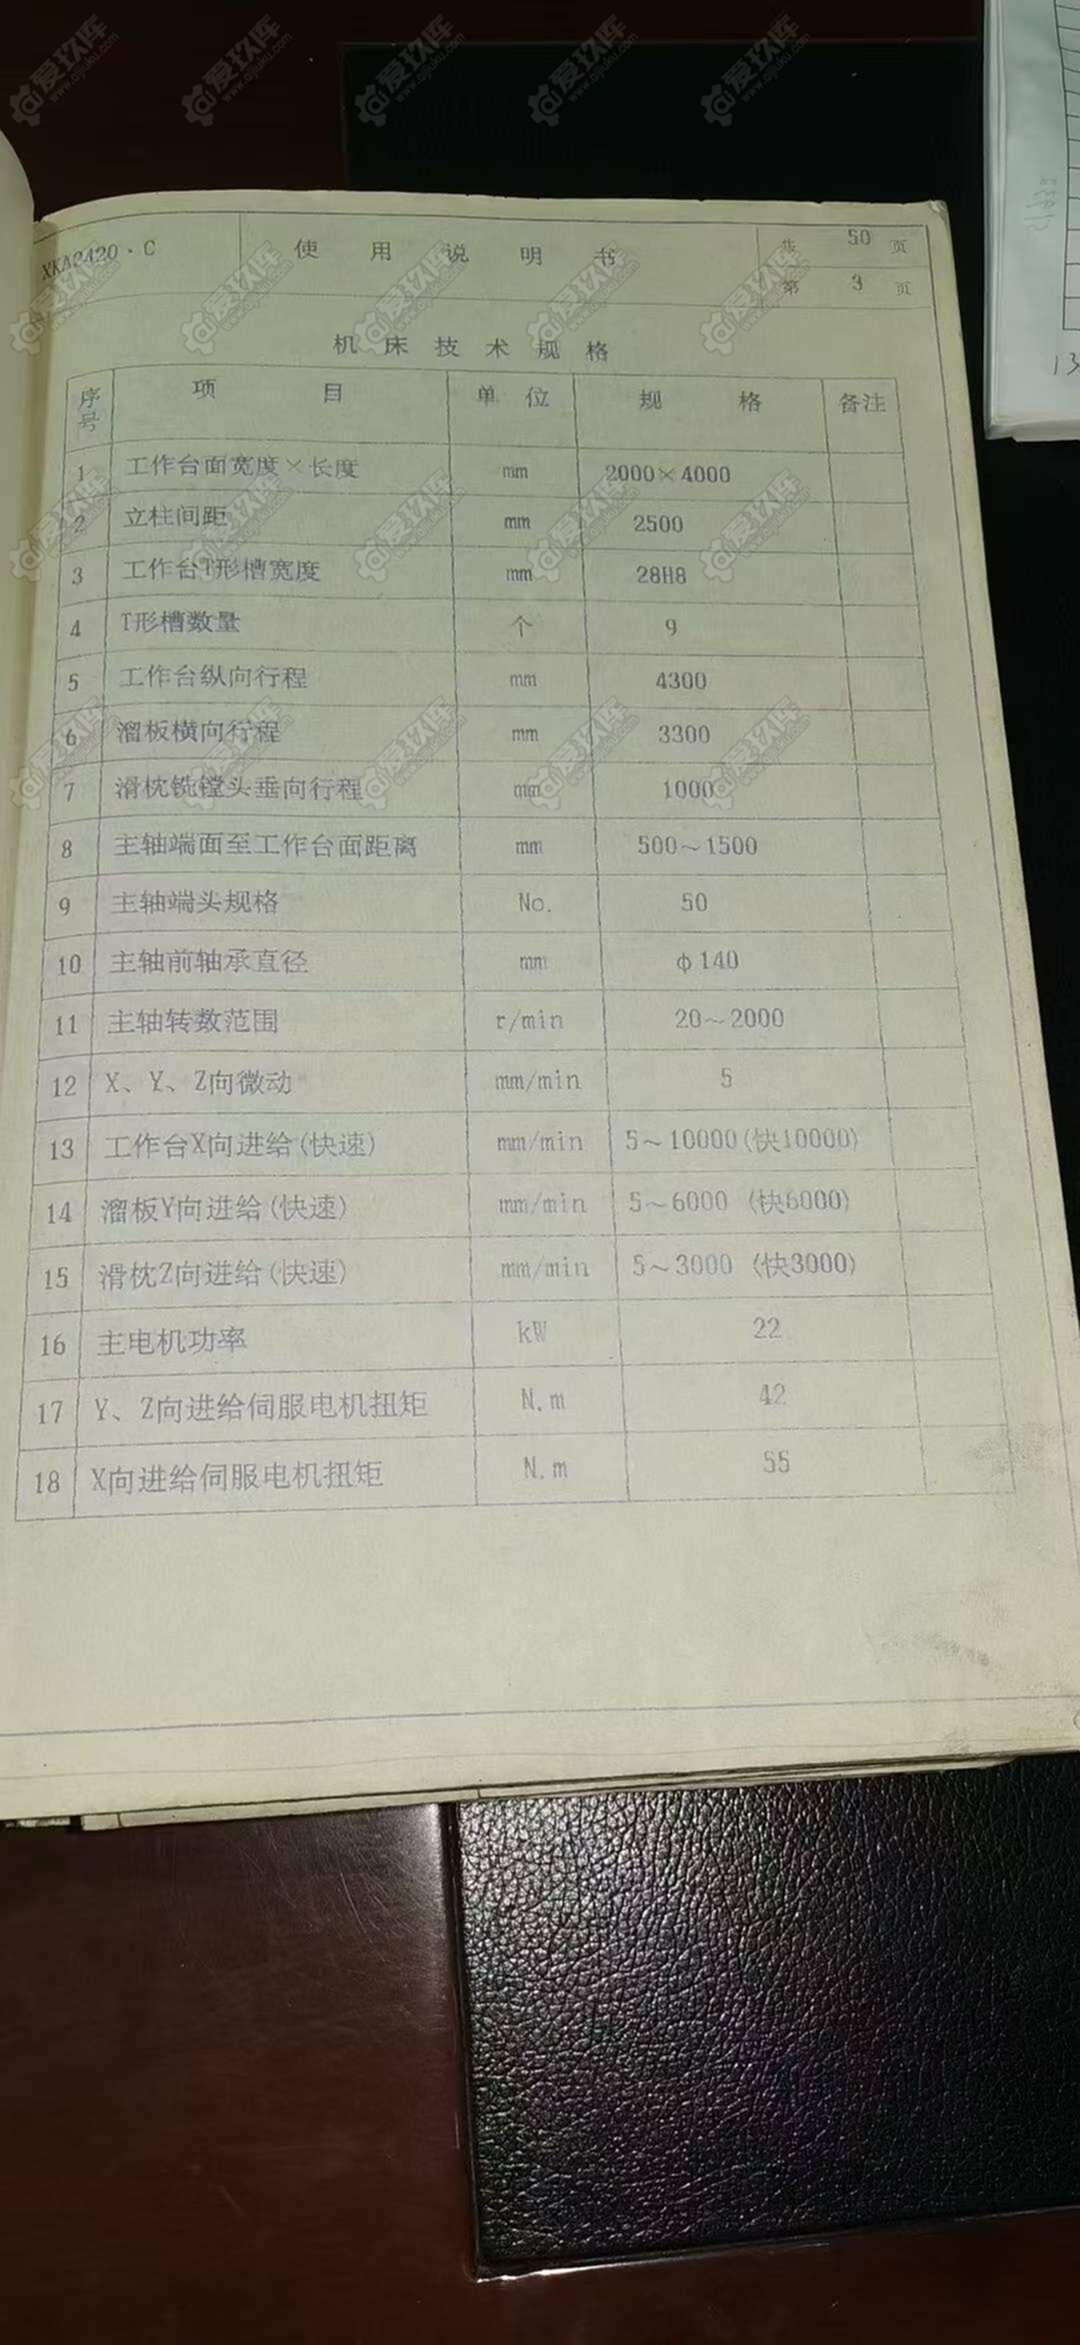 爱玖库
www.aijiuku.com
XKA2420·C 使用说明书 共 50 页
第 3 页
机床技术规格
序号 项目 单位 规格 备注
1 工作台面宽度×长度 mm 2000×4000
2 立柱间距 mm 2500
3 工作台T形槽宽度 mm 28H8
4 T形槽数量 个 9
5 工作台纵向行程 mm 4300
6 溜板横向行程 mm 3300
7 滑枕铣镗头垂向行程 mm 1000
8 主轴端面至工作台面距离 mm 500～1500
9 主轴端头规格 No. 50
10 主轴前轴承直径 mm φ140
11 主轴转数范围 r/min 20～2000
12 X、Y、Z向微动 mm/min 5
13 工作台X向进给(快速) mm/min 5～10000(快10000)
14 溜板Y向进给(快速) mm/min 5～6000 (快6000)
15 滑枕Z向进给(快速) mm/min 5～3000 (快3000)
16 主电机功率 kW 22
17 Y、Z向进给伺服电机扭矩 N.m 42
18 X向进给伺服电机扭矩 N.m 55
13